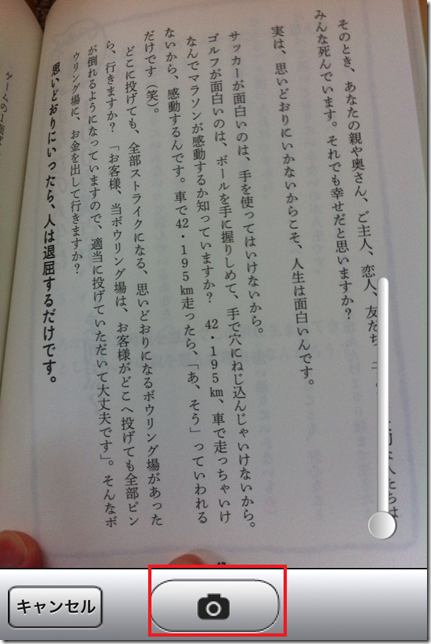 そのとき、あなたの親や奥さん、ご主人、恋人、友だち、
みんな死んでいます。それでも幸せだと思いますか？
実は、思いどおりにいかないからこそ、人生は面白いんです。
サッカーが面白いのは、手を使ってはいけないから。
ゴルフが面白いのは、ボールを手に握りしめて、手で穴にねじ込んじゃいけないから。
なんでマラソンが感動するか知っていますか？　42・195㎞、車で走っちゃいけ
ないから、感動するんです。車で42・195㎞走ったら、「あ、そう」っていわれる
だけです（笑）。
どこに投げても、全部ストライクになる、思いどおりになるボウリング場があった
ら、行きますか？　「お客様、当ボウリング場は、お客様がどこへ投げても全部ピン
が倒れるようになっていますので、適当に投げていただいて大丈夫です」。そんなボ
ウリング場に、お金を出して行きますか？
思いどおりにいったら、人は退屈するだけです。
キャンセル